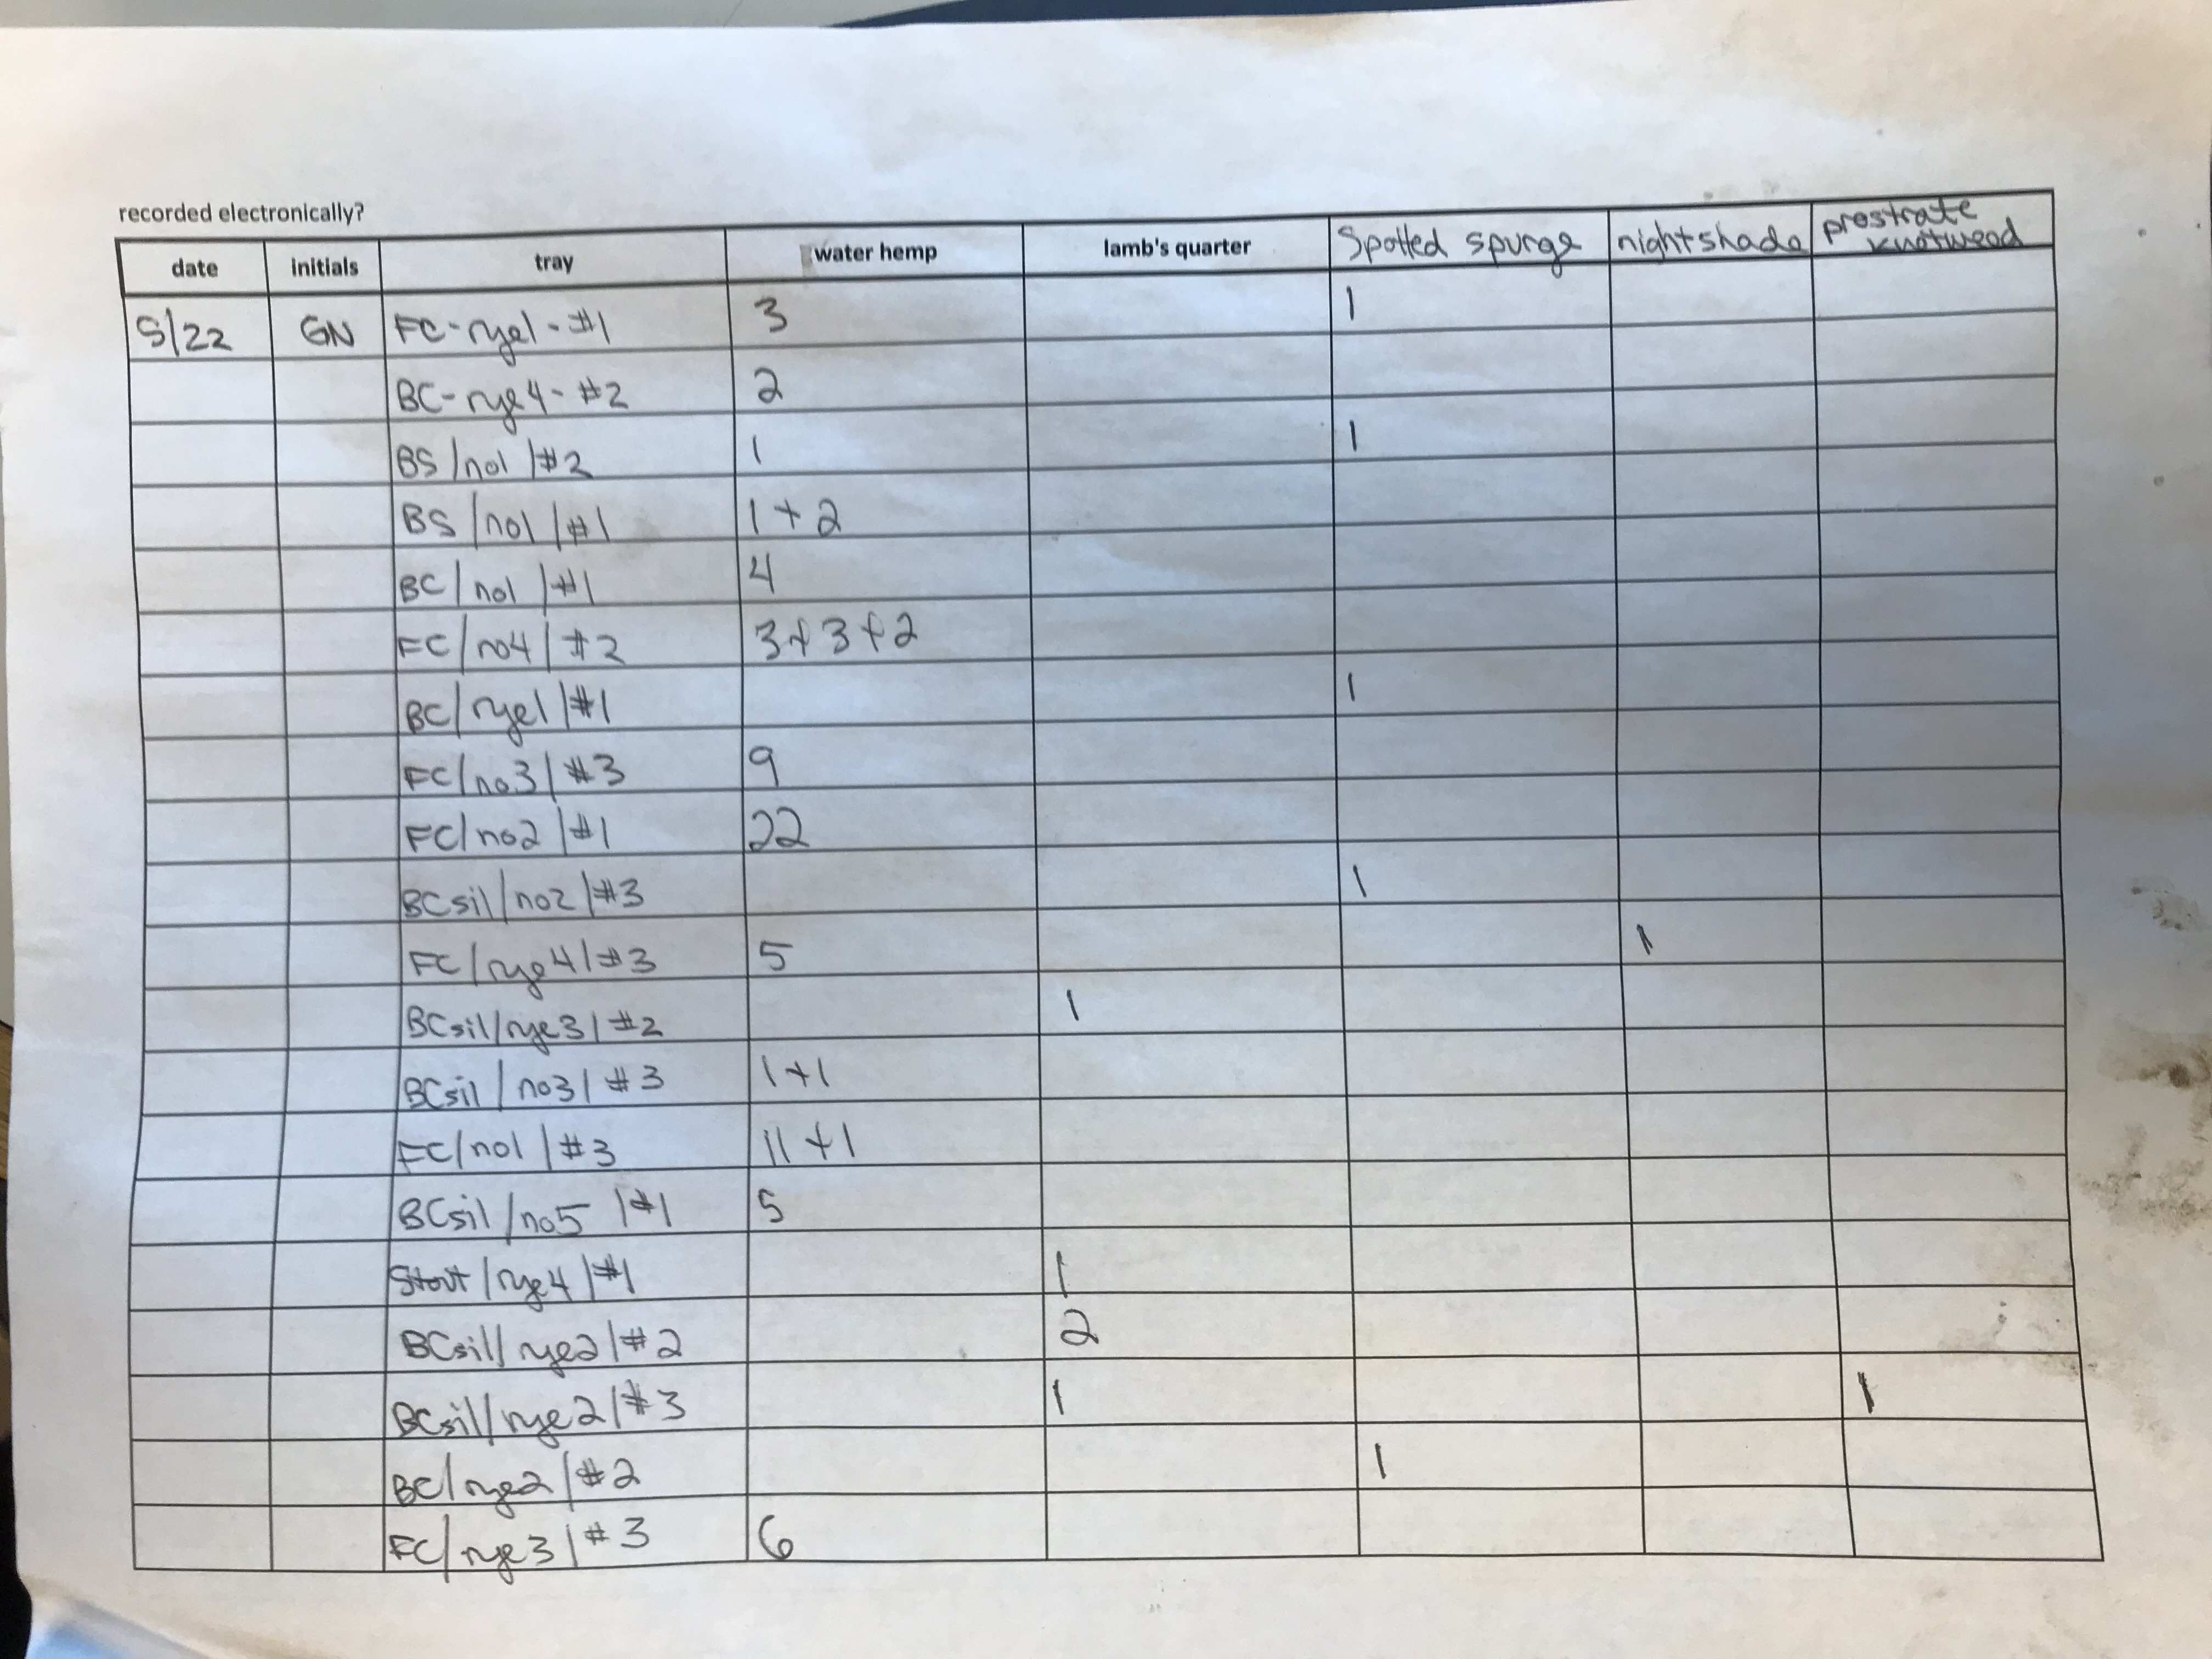 recorded electronically?
date initials tray water hemp lamb's quarter Spotted spurge nightshade prostrate knotweed
5/22 GN FC-rye1-#1 3 1
BC-rye4-#2 2
BS/no1/#2 1 1
BS/no1/#1 1+2
BC/no1/#1 4
FC/no4/#2 3+3+2
BC/rye1/#1 1
FC/no3/#3 9
FC/no2/#1 22
BCsil/no2/#3 1
FC/rye4/#3 5 1
BCsil/rye3/#2 1
BCsil/no3/#3 1+1
FC/no1/#3 11+1
BCsil/no5/#1 5
Stout/rye4/#1 1
BCsil/rye2/#2 2
BCsil/rye2/#3 1 1
BC/rye2/#2 1
FC/rye3/#3 6